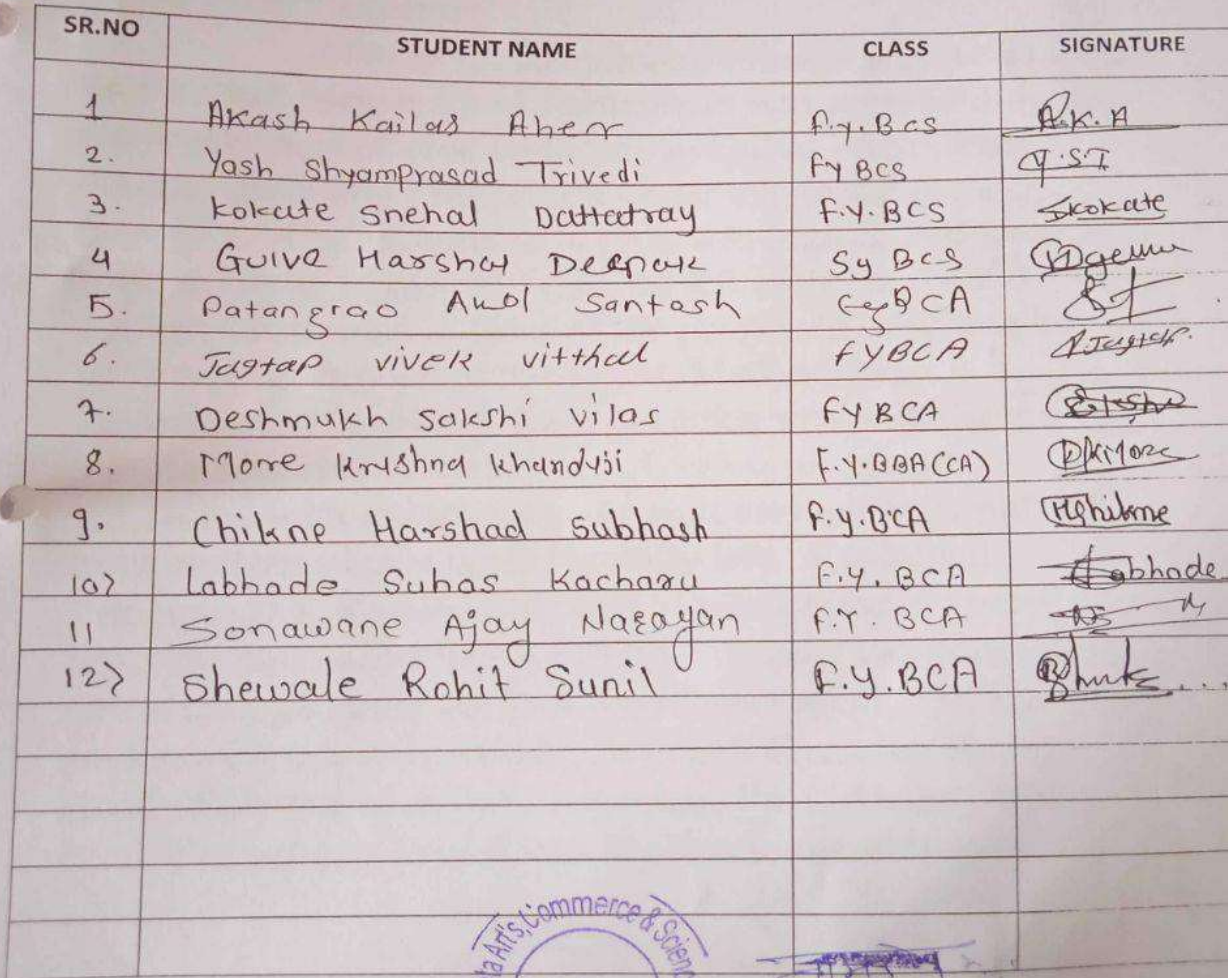 SR.NO STUDENT NAME CLASS SIGNATURE
1 Akash Kailas Aher F.Y.Bcs A.K.A
2. Yash Shyamprasad Trivedi FY BCS Y.S.T
3. Kokate Snehal Dattatray F.Y.BCS Skokate
4 Guive Harshal Deepak Sy BCS
5. Patangrao Amol Santosh BCA
6. Jagtap vivek vitthal FYBCA Jagtap.
7. Deshmukh Sakshi vilas FY BCA
8. More Krushna Khanduji F.Y.BBA(CA)
9. Chikne Harshad Subhash F.Y.BCA Hchikne
10> Labhade Suhas Kacharu F.Y. BCA Labhade
11 Sonawane Ajay Narayan F.Y. BCA
12> Shewale Rohit Sunil F.Y.BCA
Arts, Commerce & Scien